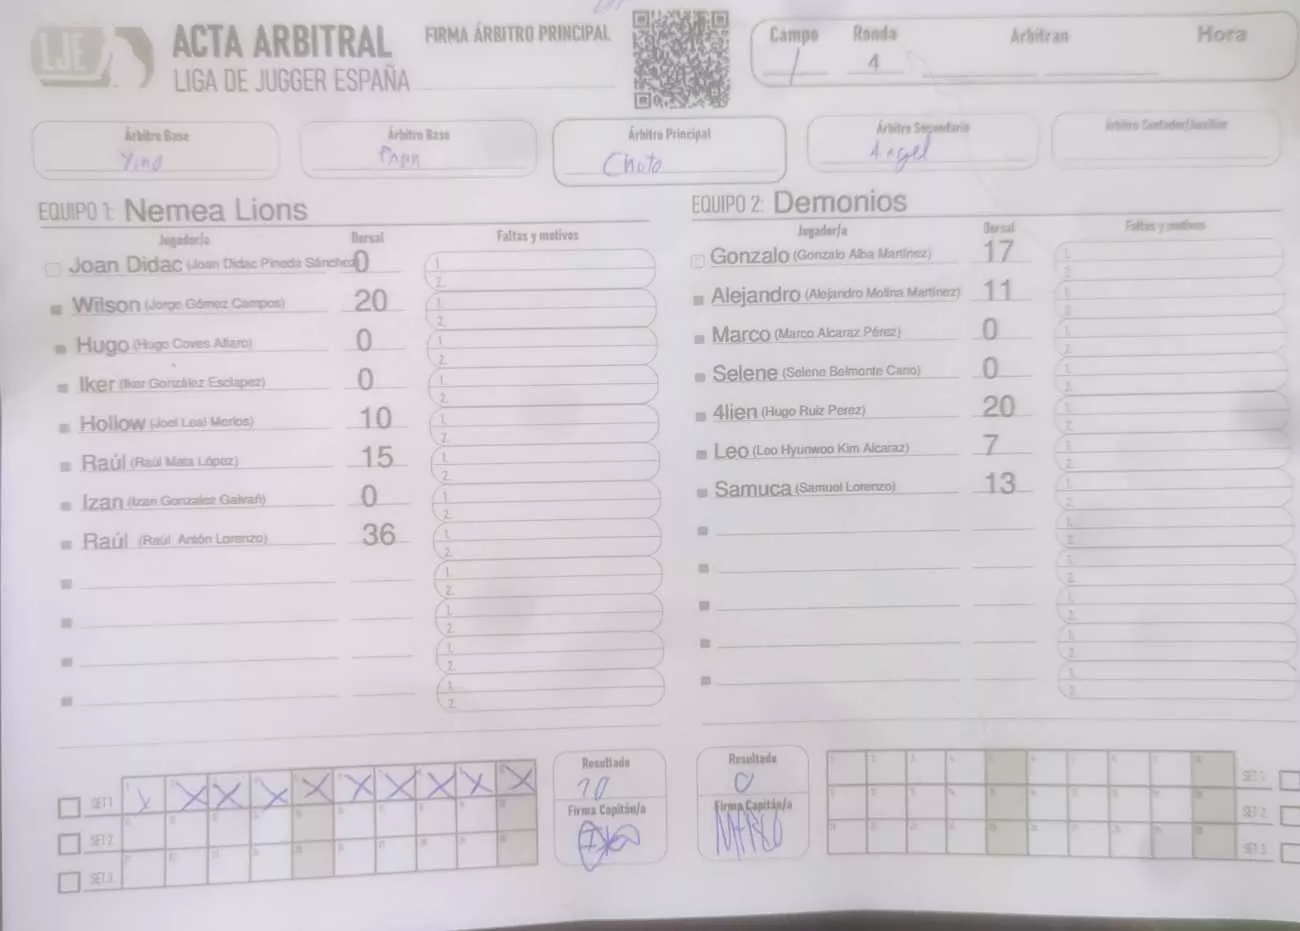 LJE
ACTA ARBITRAL
LIGA DE JUGGER ESPAÑA
FIRMA ÁRBITRO PRINCIPAL
Campo Ronda Arbitran Hora
1 4
Árbitro Base Árbitro Base Árbitro Principal Árbitro Secundario Árbitro Contador/Auxiliar
Yino Choto Angel
EQUIPO 1: Nemea Lions
Jugador/a Dorsal Faltas y motivos
Joan Didac (Joan Didac Pineda Sánchez) 0 1. 2.
Wilson (Jorge Gómez Campos) 20 1. 2.
Hugo (Hugo Coves Alfaro) 0 1. 2.
Iker (Iker González Esclapez) 0 1. 2.
Hollow (Joel Leal Merlos) 10 1. 2.
Raúl (Raúl Mata López) 15 1. 2.
Izan (Izan Gonzalez Galvañ) 0 1. 2.
Raúl (Raúl Antón Lorenzo) 36 1. 2.
1. 2.
1. 2.
1. 2.
1. 2.
EQUIPO 2: Demonios
Jugador/a Dorsal Faltas y motivos
Gonzalo (Gonzalo Alba Martínez) 17 1. 2.
Alejandro (Alejandro Molina Martínez) 11 1. 2.
Marco (Marco Alcaraz Pérez) 0 1. 2.
Selene (Selene Belmonte Cano) 0 1. 2.
4lien (Hugo Ruiz Perez) 20 1. 2.
Leo (Leo Hyunwoo Kim Alcaraz) 7 1. 2.
Samuca (Samuel Lorenzo) 13 1. 2.
1. 2.
1. 2.
1. 2.
1. 2.
1. 2.
SET 1 X X X X X X X X X X
SET 2
SET 3
Resultado
10
Firma Capitán/a
Resultado
0
Firma Capitán/a
MARCO
SET 1
SET 2
SET 3